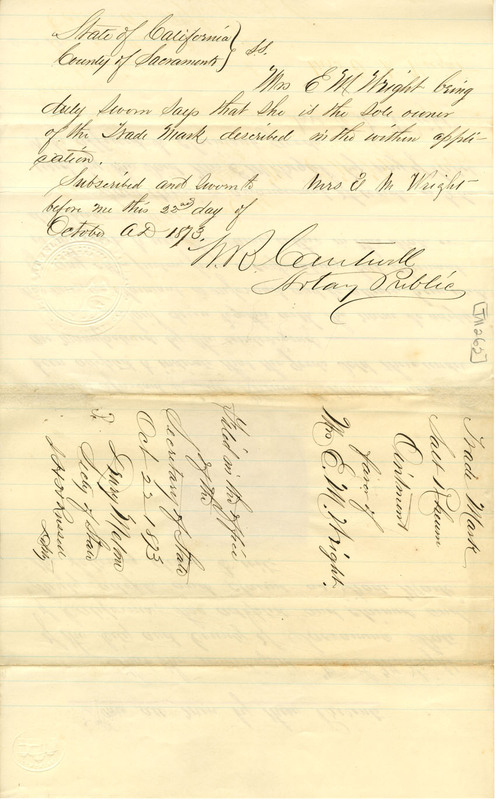 State of California } ss.
County of Sacramento
Mrs E M Wright being
duly sworn says that she is the sole owner
of the Trade Mark described in the within appli-
cation.
Subscribed and sworn to Mrs E M Wright
before me this 22nd day of
October A D 1873.
W. B. Cantwell
Notary Public
[TM262]
Trade Mark
Salt Rheum
Ointment
favor of
Mrs E. M. Wright.
Filed in the office
of the
Secretary of State
Oct 22 1873
Drury Melone
Secy of State
Depy